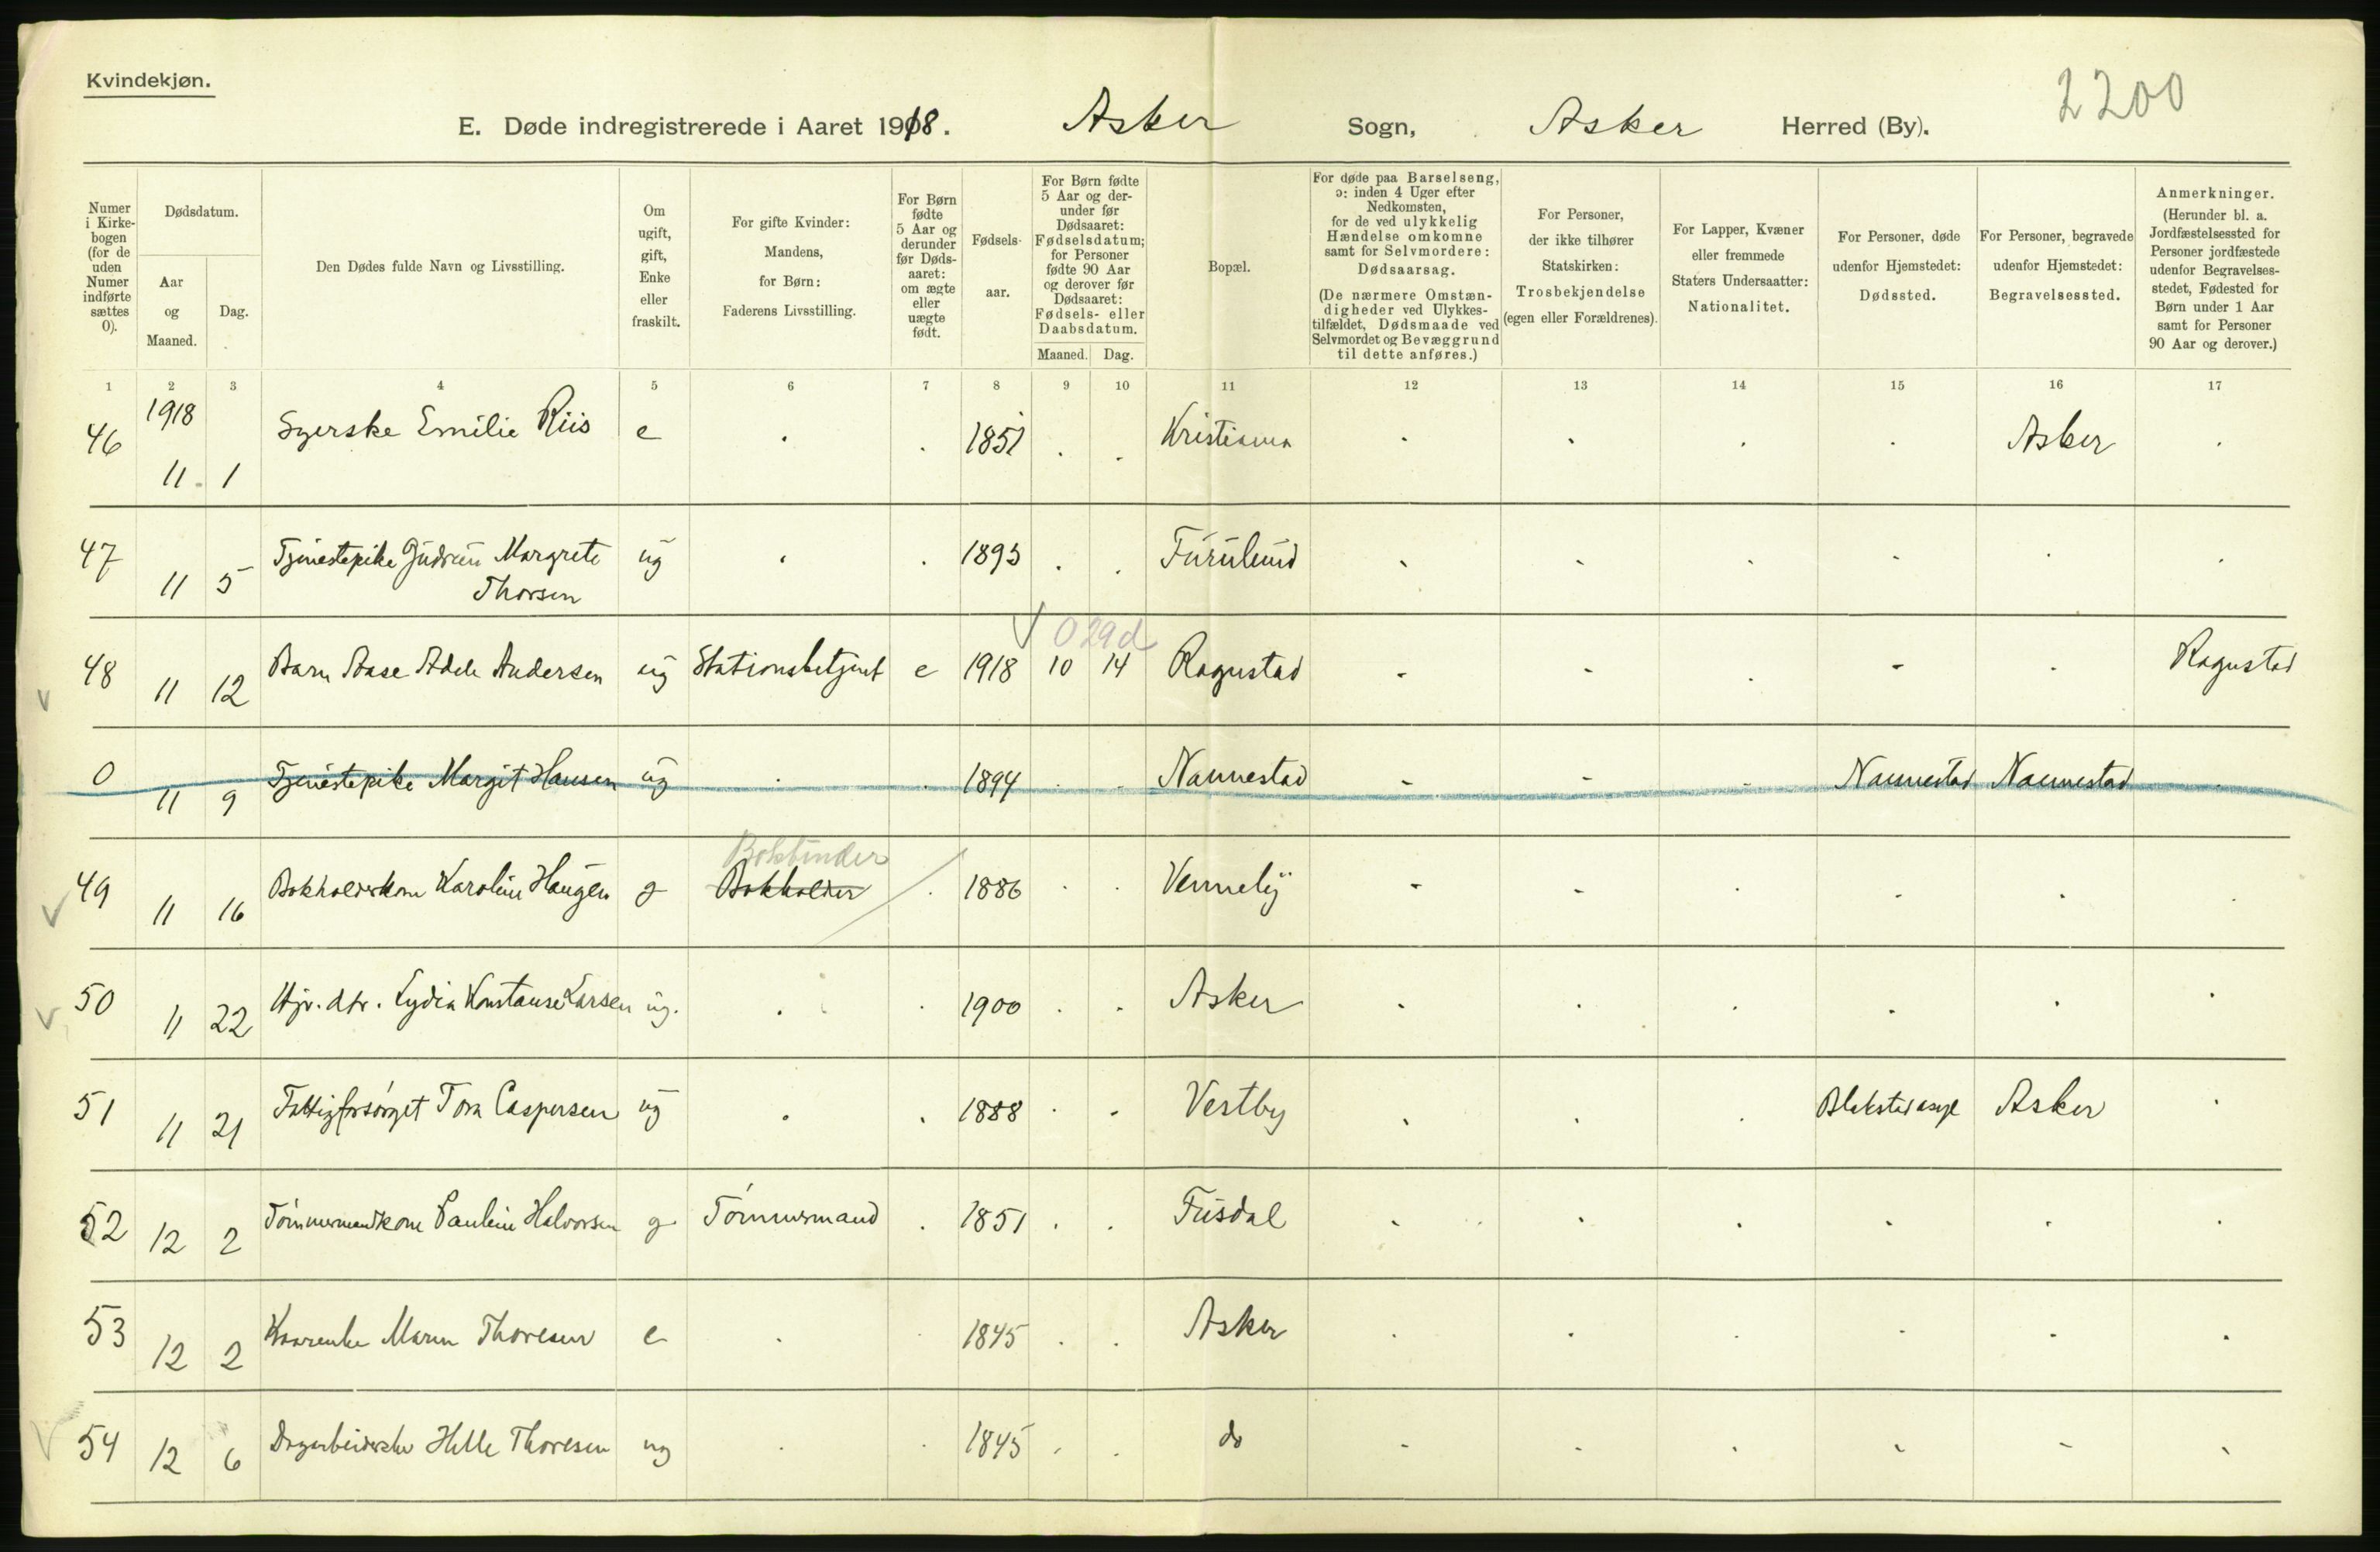 Kvindekjøn.
2200
E. Døde indregistrerede i Aaret 1918. Asker Sogn, Asker Herred (By).
Numer i Kirke-bogen (for de uden Numer indførte sættes 0).
Dødsdatum.
Aar og Maaned.
Dag.
Den Dødes fulde Navn og Livsstilling.
Om ugift, gift, Enke eller fraskilt.
For gifte Kvinder: Mandens, for Børn: Faderens Livsstilling.
For Børn fødte 5 Aar og derunder før Døds-aaret: om ægte eller uægte født.
Fødsels-aar.
For Børn fødte 5 Aar og der-under før Dødsaaret: Fødselsdatum; for Personer fødte 90 Aar og derover før Dødsaaret: Fødsels- eller Daabsdatum.
Maaned. Dag.
Bopæl.
For døde paa Barselseng, ɔ: inden 4 Uger efter Nedkomsten, for de ved ulykkelig Hændelse omkomne samt for Selvmordere: Dødsaarsag. (De nærmere Omstæn-digheder ved Ulykkes-tilfældet, Dødsmaade ved Selvmordet og Bevæggrund til dette anføres.)
For Personer, der ikke tilhører Statskirken: Trosbekjendelse (egen eller Forældrenes).
For Lapper, Kvæner eller fremmede Staters Undersaatter: Nationalitet.
For Personer, døde udenfor Hjemstedet: Dødssted.
For Personer, begravede udenfor Hjemstedet: Begravelsessted.
Anmerkninger. (Herunder bl. a. Jordfæstelsessted for Personer jordfæstede udenfor Begravelses-stedet, Fødested for Børn under 1 Aar samt for Personer 90 Aar og derover.)
1 2 3 4 5 6 7 8 9 10 11 12 13 14 15 16 17
46 1918 11 1 Syerske Emilie Riis e 1851 Kristiania Asker
47 11 5 Tjenestepike Gudrun Margrete Thorsen ug 1893 Furulund
029d
48 11 12 Barn Aase Adele Andersen ug Stationsbetjent e 1918 10 14 Ragustad Ragustad
0 11 9 Tjenestepike Margit Hansen ug 1894 Nannestad Nannestad Nannestad
Bokbinder
49 11 16 Bokholderkone Karoline Haugen g Bokholder 1886 Venneby
50 11 22 Hjv. dtr. Lydia Konstanse Larsen ug. 1900 Asker
51 11 21 Fattigforsørget Tora Caspersen ug 1888 Vestby Blakstad asyl Asker
52 12 2 Tømmermandkone Pauline Halvorsen g Tømmermand 1851 Fusdal
53 12 2 Kaarenke Maren Thoresen e 1845 Asker
54 12 6 Dagarbeiderske Helle Thoresen ug 1845 do